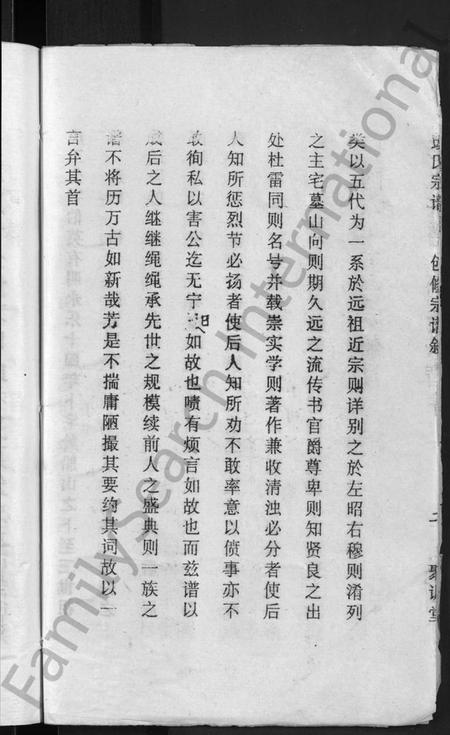 氏宗谱
修宗谱
二
类以五代为一系於远祖近宗则详别之於左昭右穆则淆列
之主宅墓山向则期久远之流传书官爵尊卑则知贤良之出
处杜雷同则名号并载崇实学则著作兼收清浊必分者使后
人知所惩烈节必扬者使后人知所劝不敢率意以偾事亦不
敢徇私以害公迄无宁 如故也啧有烦言如故也而兹谱以
成后之人继继绳绳承先世之规模续前人之盛典则一族之
谱不将历万古如新哉芳是不揣庸陋撮其要约其词故以一
言弁其首
FamilySearch International